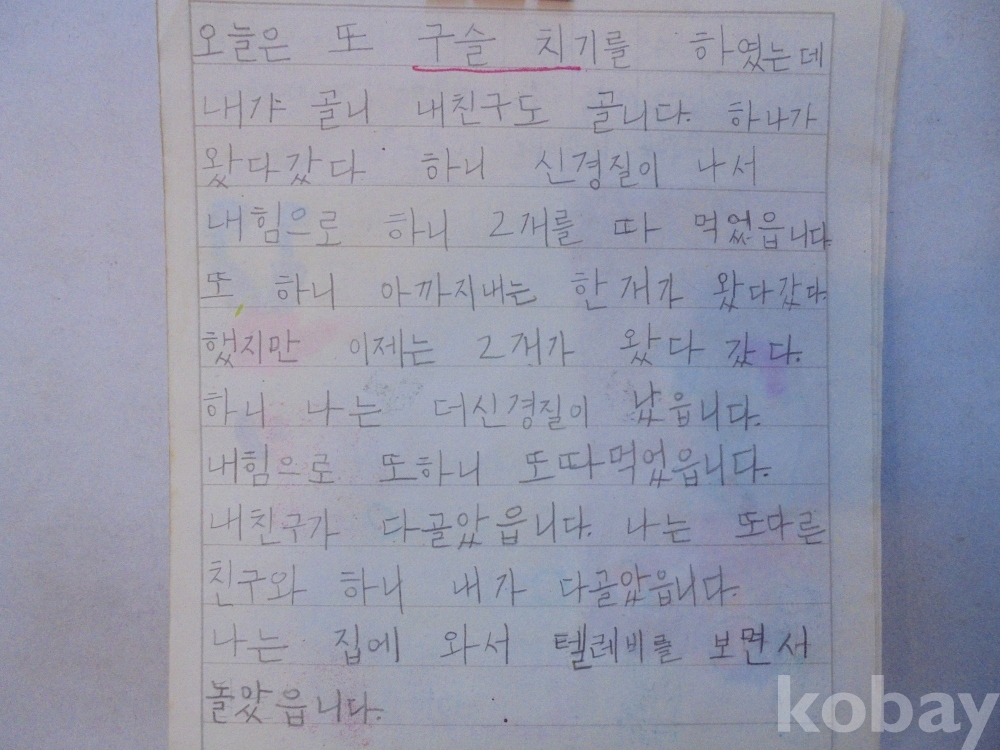 오늘은 또 구슬 치기를 하였는데
내가 골니 내친구도 골니다. 하나가
왔다갔다 하니 신경질이 나서
내힘으로 하니 2개를 따 먹었읍니다
또 하니 아까지내는 한개가 왔다갔다
했지만 이제는 2개가 왔다 갔다.
하니 나는 더신경질이 났읍니다.
내힘으로 또하니 또따먹었읍니다.
내친구가 다골았읍니다. 나는 또다른
친구와 하니 내가 다골았읍니다.
나는 집에 와서 텔레비를 보면서
놀았읍니다.
kobay